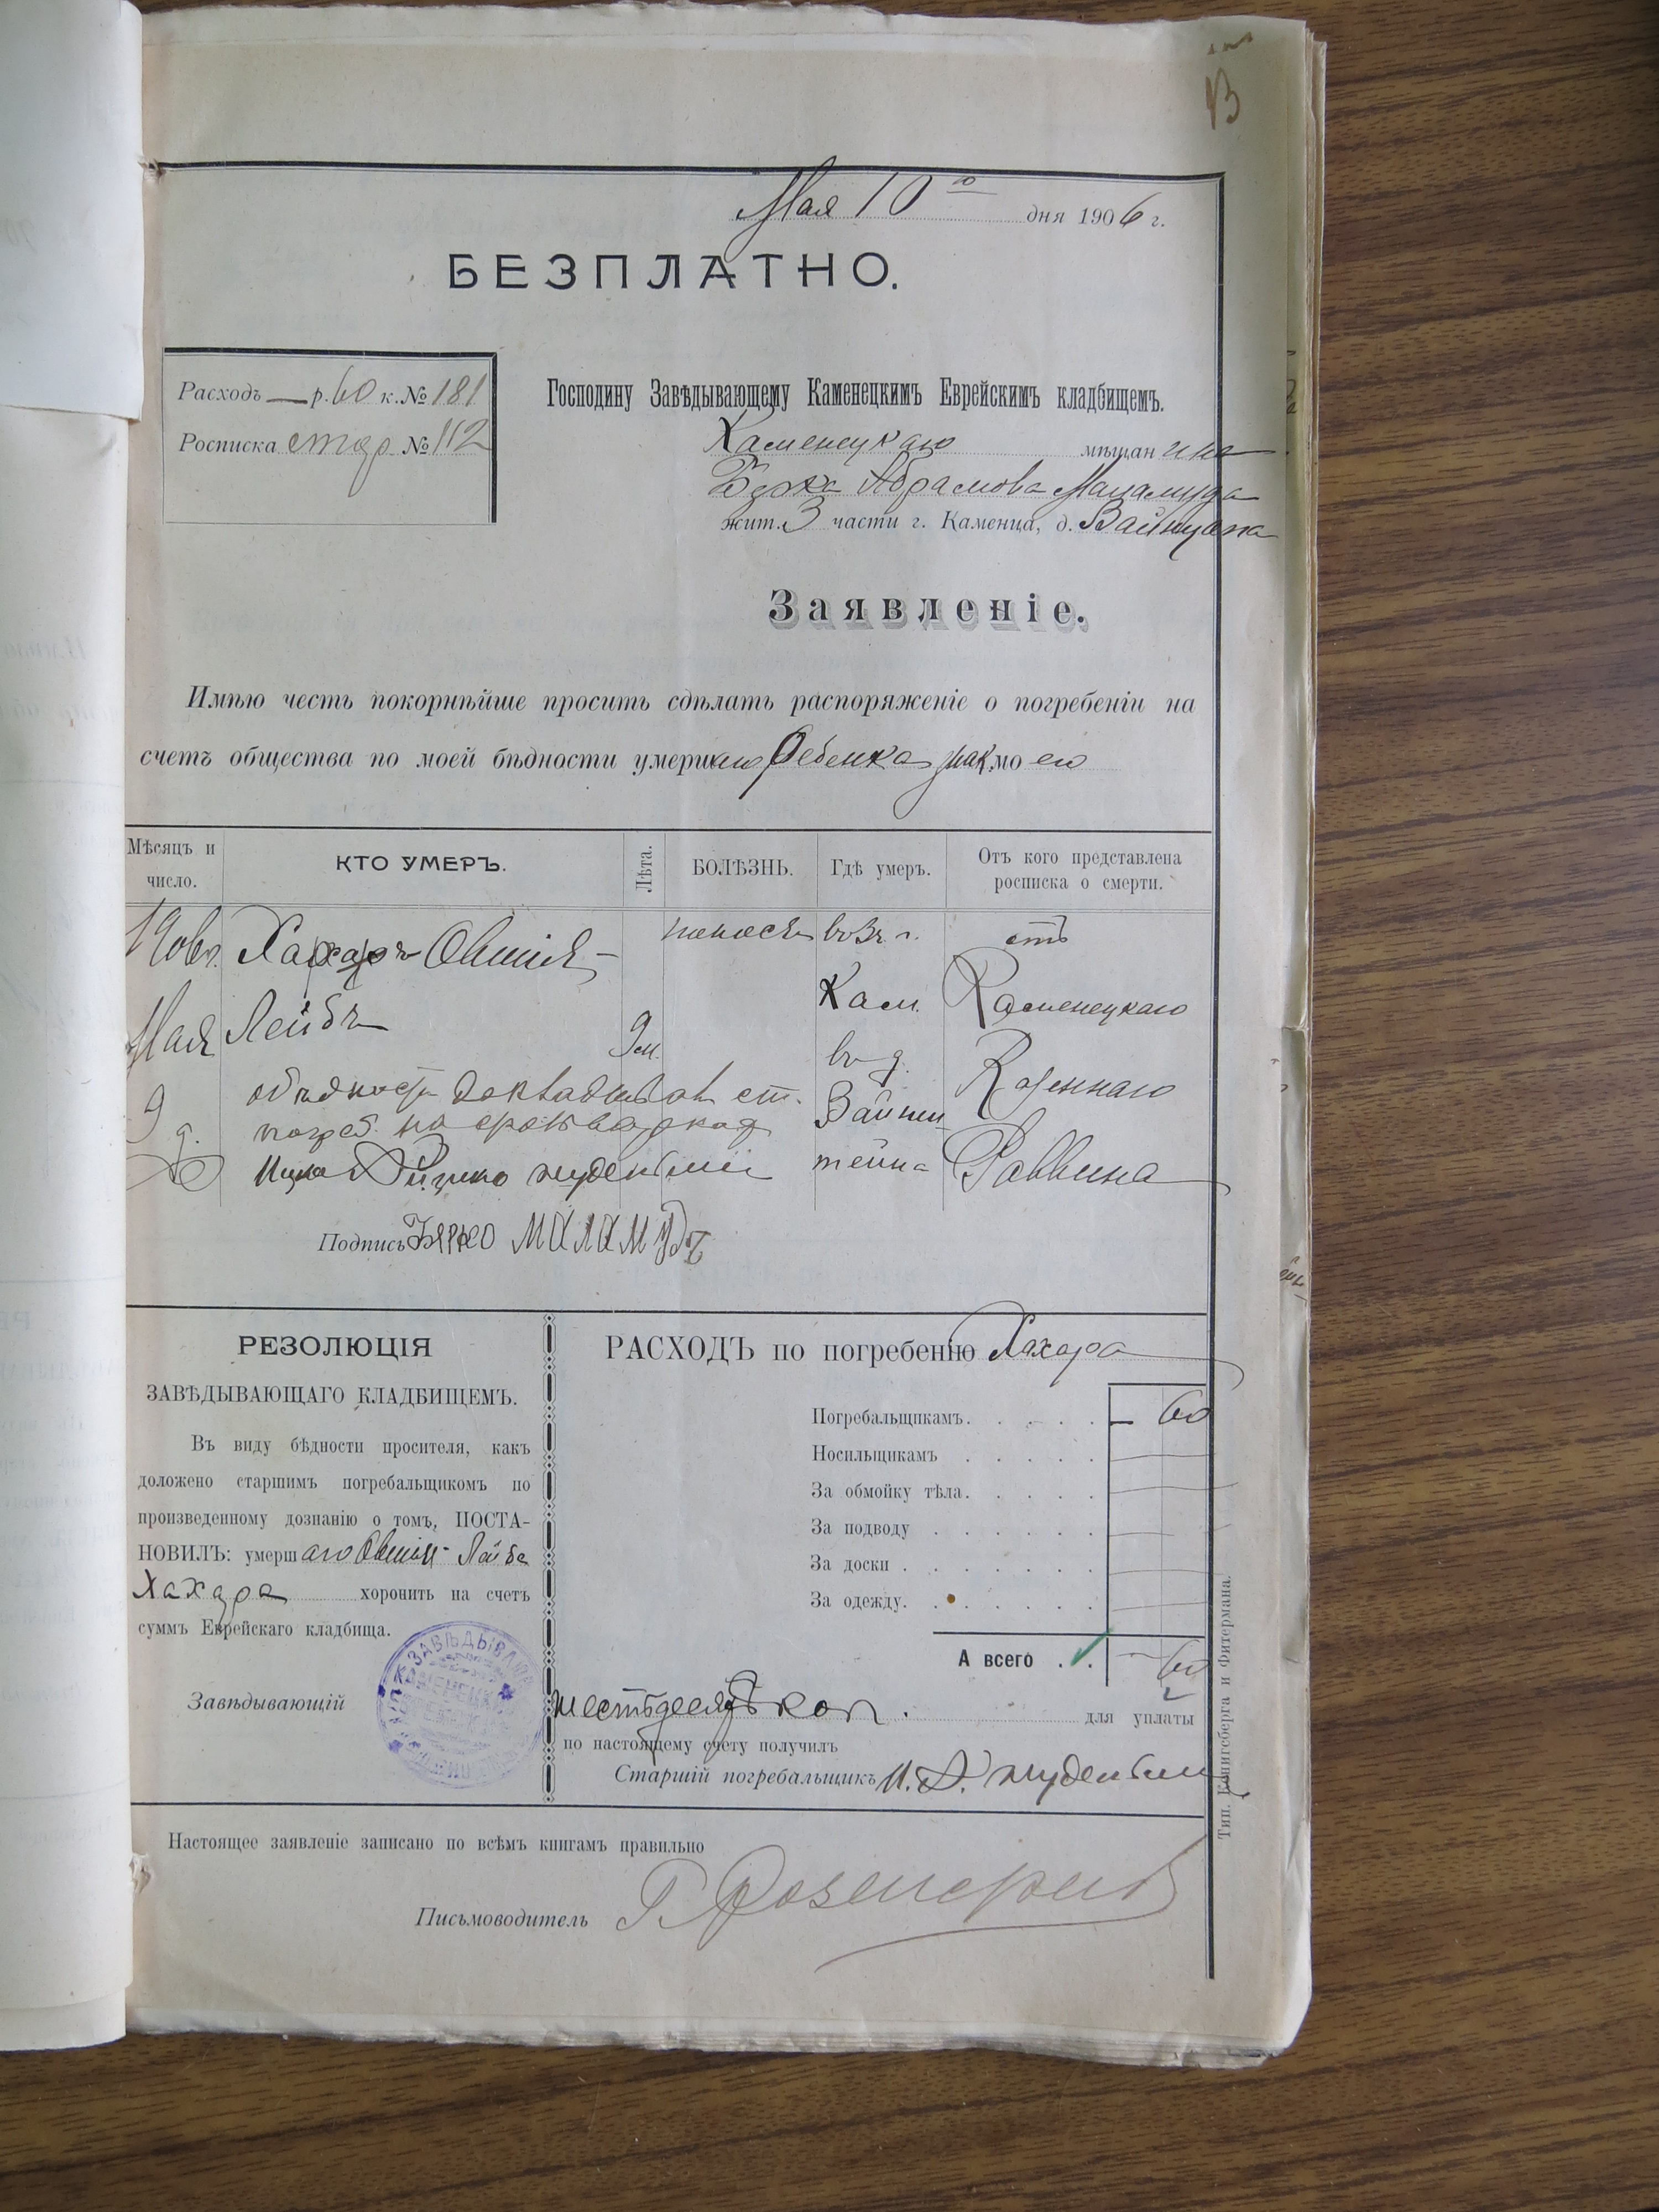 13
Мая 10го дня 1906 г.
БЕЗПЛАТНО.
Расходъ — р. 60 к. № 181
Росписка стар. № 112
Господину Завѣдывающему Каменецкимъ Еврейскимъ кладбищемъ.
Каменецкаго мѣщанина
Берка Абрамова Маламуда
жит. 3 части г. Каменца, д. Вайнштейна
Заявленіе.
Имѣю честь покорнѣйше просить сдѣлать распоряженіе о погребеніи на
счетъ общества по моей бѣдности умершаго ребенка
Мѣсяцъ и число.
КТО УМЕРЪ.
Лѣта.
БОЛѢЗНЬ.
Гдѣ умеръ.
Отъ кого представлена росписка о смерти.
1906 г.
Мая
9
д.
Хахаръ Овшія-
Лейбъ
9 м.
поносъ
въ 3 ч. г.
Кам.
въ д.
Вайнш
тейна
отъ
Каменецкаго
Казеннаго
Раввина
о бѣдности
погреб.
Подпись Берко Маламудъ
РЕЗОЛЮЦІЯ
ЗАВѢДЫВАЮЩАГО КЛАДБИЩЕМЪ.
Въ виду бѣдности просителя, какъ
доложено старшимъ погребальщикомъ по
произведенному дознанію о томъ, ПОСТА-
НОВИЛЪ: умершаго Овшія-Лейба
Хахара хоронить на счетъ
суммъ Еврейскаго кладбища.
Завѣдывающій
РАСХОДЪ по погребенію Хахара
Погребальщикамъ. . . . . . — 60
Носильщикамъ . . . . .
За обмойку тѣла. . . . .
За подводу . . . . . .
За доски . . . . . . .
За одежду. . . . . . .
А всего . . — 60
шестьдесятъ коп. для уплаты
по настоящему счету получилъ
Старшій погребальщикъ И.
Настоящее заявленіе записано по всѣмъ книгамъ правильно
Письмоводитель
Тип. Кенигсберга и Фитермана.